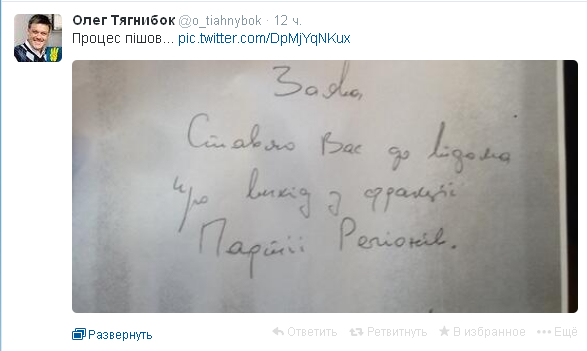 Олег Тягнибок @o_tiahnybok · 12 ч.
Процес пішов... pic.twitter.com/DpMjYqNKux
Заява
Ставлю Вас до відома
про вихід з фракції
Партії Регіонів.
Развернуть Ответить Ретвитнуть В избранное Ещё